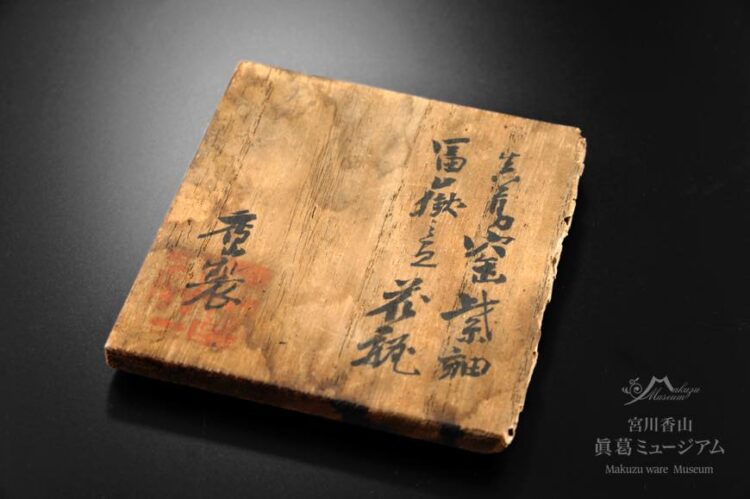 真葛窯紫釉
冨嶽之図花瓶
香山製
Makuzu
Museum
宮川香山
眞葛ミュージアム
Makuzu ware Museum